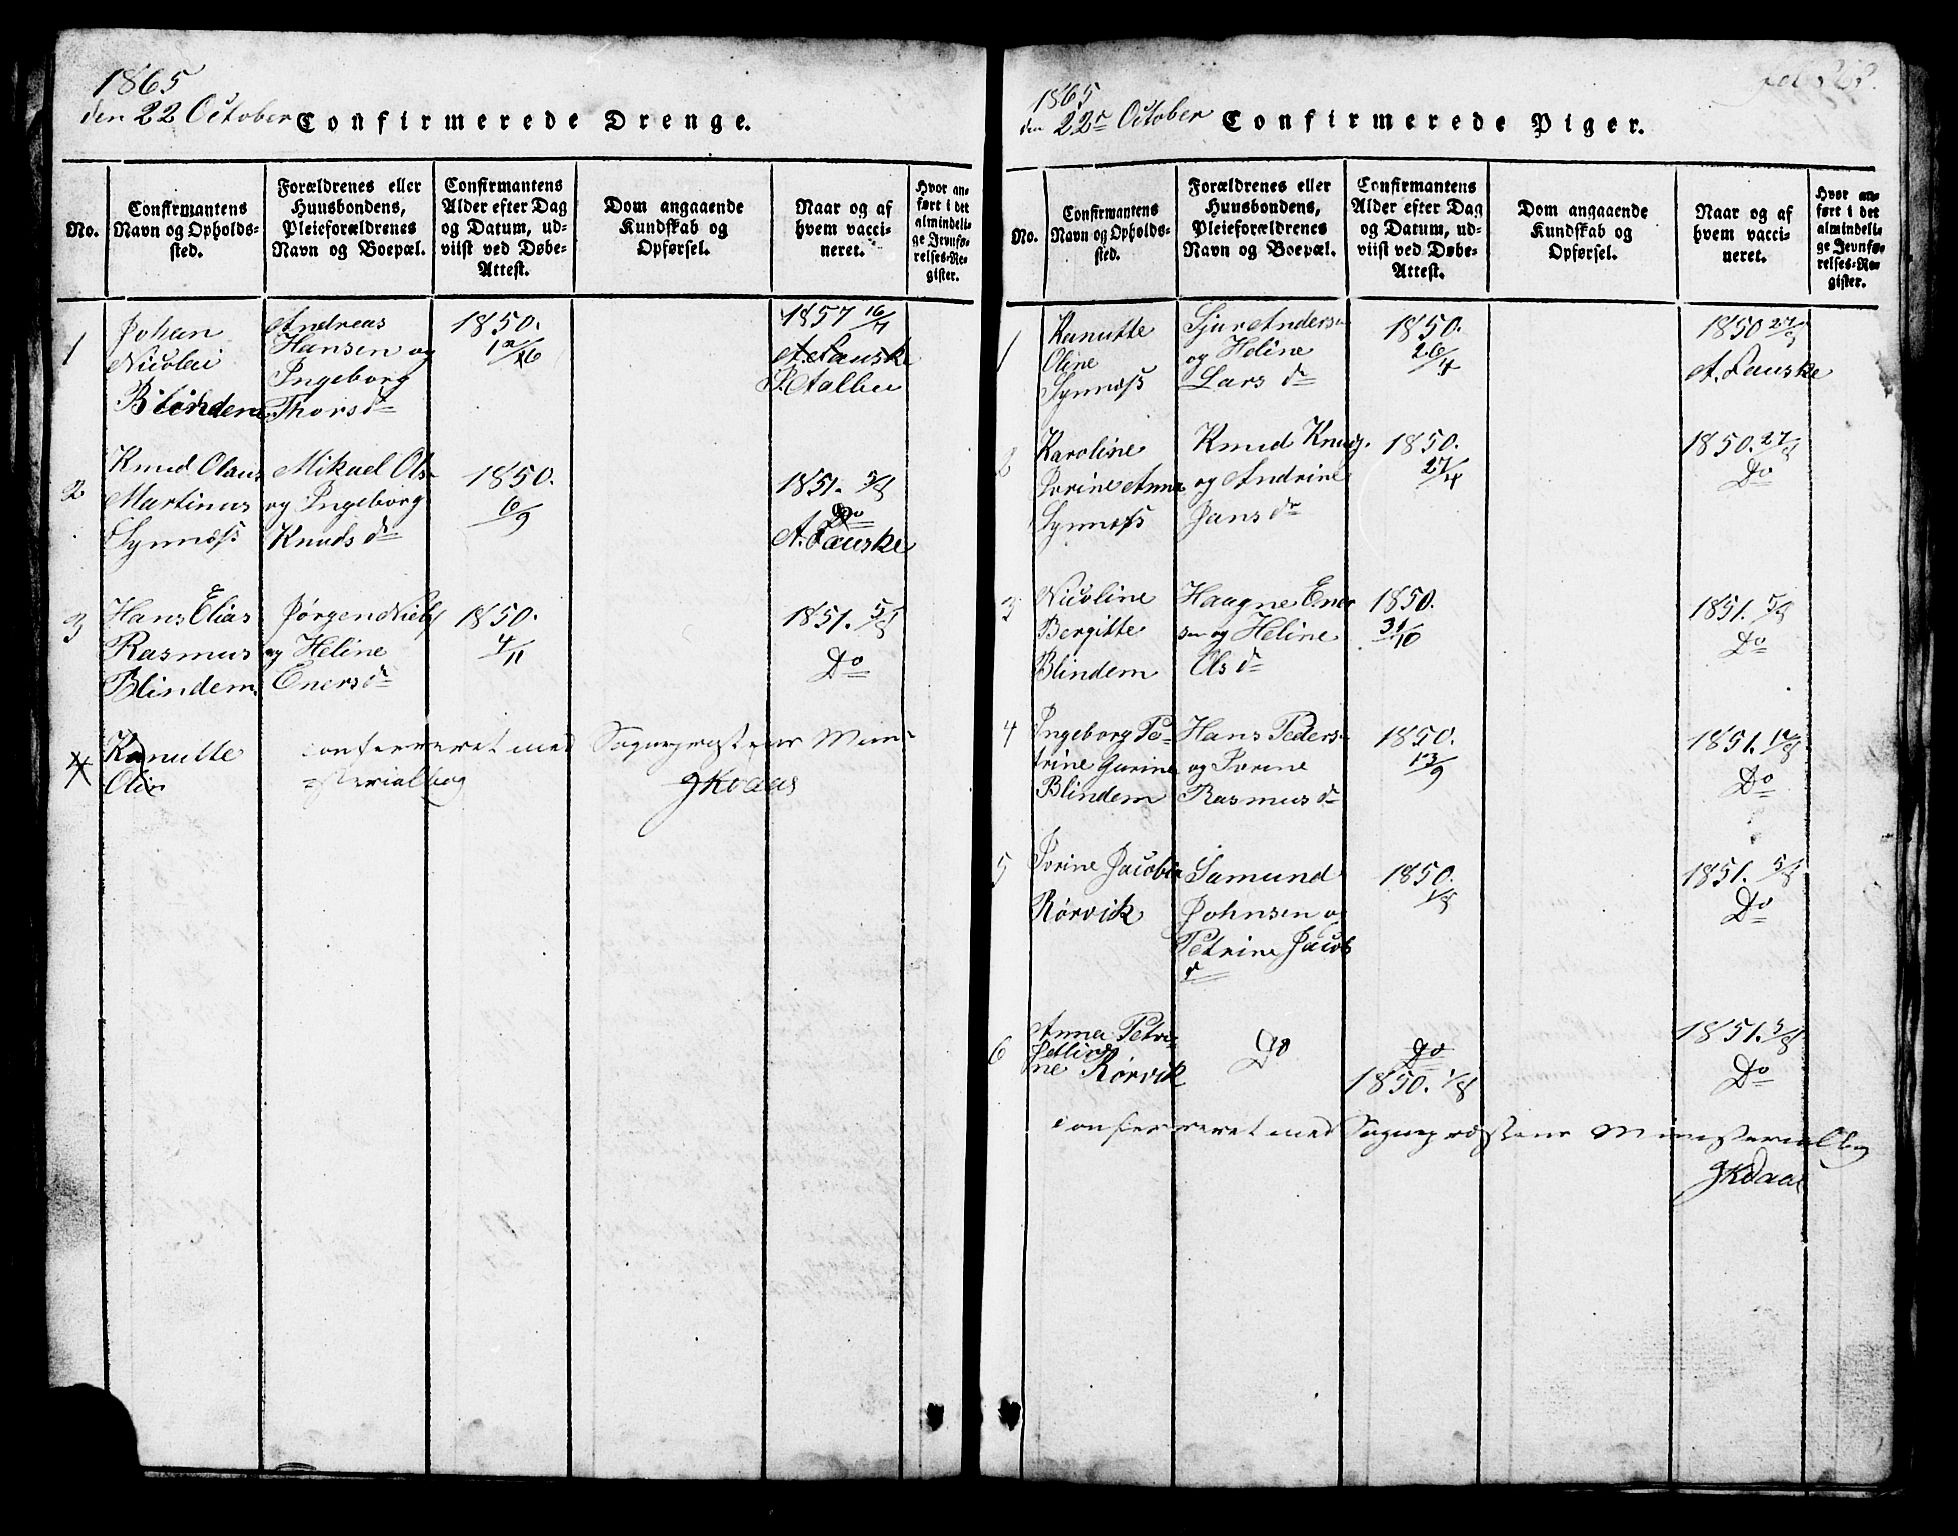 1865
den 22 October Confirmerede Drenge.
No.
Confirmantens
Navn og Opholds-
sted.
Forældrenes eller
Huusbondens,
Pleieforældrenes
Navn og Boepæl.
Confirmantens
Alder efter Dag
og Datum, ud-
viist ved Døbe-
Attest.
Dom angaaende
Kundskab og
Opførsel.
Naar og af
hvem vacci-
neret.
Hvor an-
ført i det
almindeli-
ge Jevnfø-
relses-Re-
gister.
1
Johan
Nicolai
Blindem
Andreas
Hansen og
Ingeborg
Thorsdr
1850.
1857 16/7
A. Lauske
P. Aalbu
2
Knud Olaus
Martinus
Synnæss
Mikael Ols
og Ingeborg
Knudsdr
1850.
6/9
1851. 5/8
Do
A. Lauske
3
Hans Elias
Rasmus
Blindem
Jørgen Niels
og Heline
Enersdr
1850.
4/11
1851. 5/8
Do
4
Kanutte
Olin
conferreret med Sognepræstens Mini-
sterialbog
JKDaae
1865
den 22r October Confirmerede Piger.
No.
Confirmantens
Navn og Opholds-
sted.
Forældrenes eller
Huusbondens,
Pleieforældrenes
Navn og Boepæl.
Confirmantens
Alder efter Dag
og Datum, ud-
viist ved Døbe-
Attest.
Dom angaaende
Kundskab og
Opførsel.
Naar og af
hvem vacci-
neret.
Hvor an-
ført i det
almindeli-
ge Jevnfø-
relses-Re-
gister.
1
Kanutte
Oline
Synnæss
Sjur Anders
og Heline
Lars dr
1850.
26/4
1850 27/9
A. Lauske
2
Karoline
Sørine Anna
Synnæss
Knud Knuds.
og Andrine
Jans dr
1850.
27/4
1850. 27/8
Do
3
Nicoline
Bergitte
Blindem
Haagne Ener
sen og Heline
Ols dr
1850.
31/10
1851. 5/8
Do
4
Ingeborg Pe-
trine Gurine
Blindem
Hans Peders
og Sørine
Rasmus dr
1850.
13/9
1851. 14/8
Do
5
Sørine Jacobin
Rørvik
Samund
Johnsen og
Petrine Jacob
dr
1850.
1/8
1851. 5/8
Do
6
Anna Petri-
ne Rørvik
Do
Do
1850. 1/8
1851. 5/8
Do
conferreret med Sognepræstens Ministerialbog
JKDaae